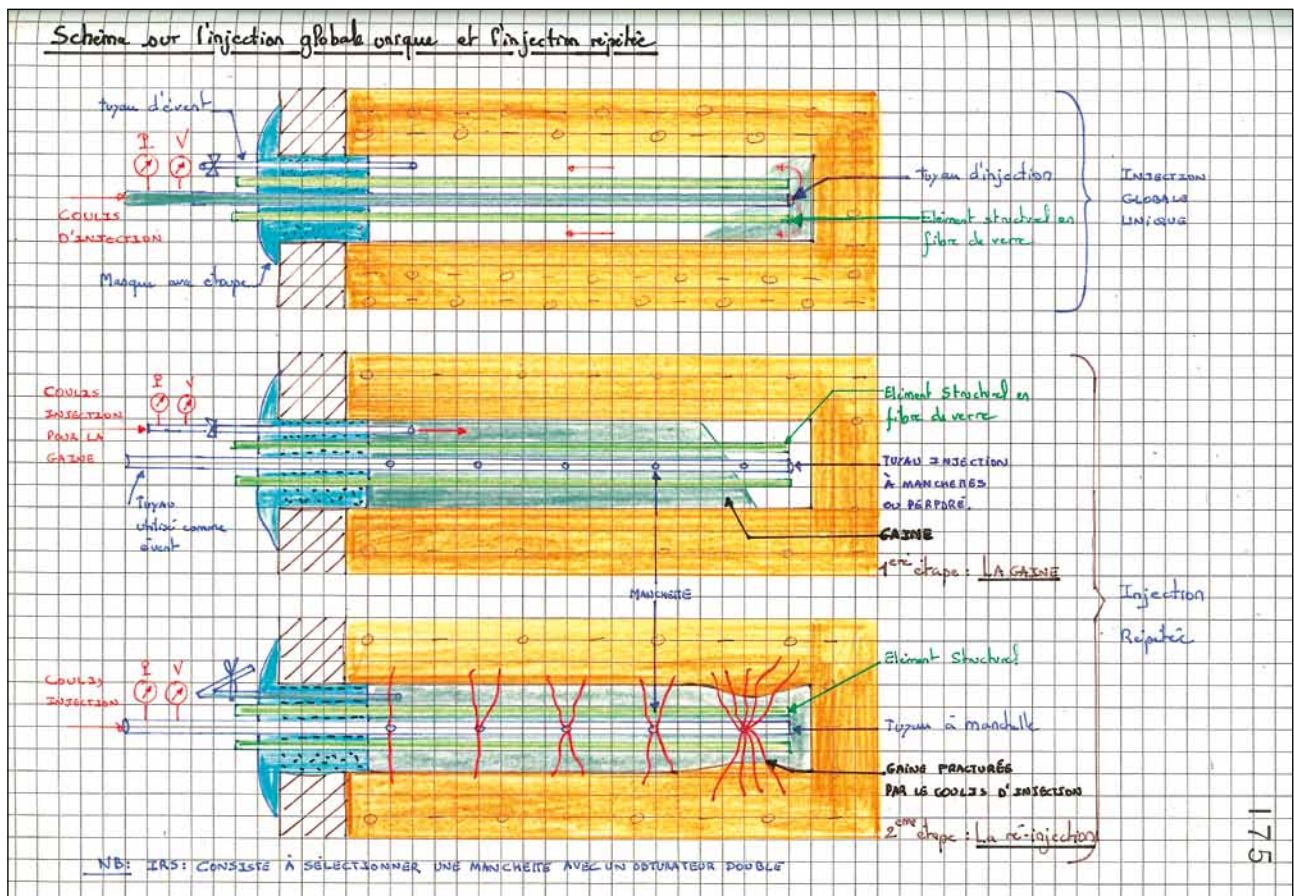 Schéma sur l'injection globale unique et l'injection répétée
tuyau d'évent
P V
COULIS
D'INJECTION
Masque
tuyau d'injection
Elément structural en
fibre de verre
INJECTION
GLOBALE
UNIQUE
COULIS
INJECTION
POUR LA
GAINE
P V
Tuyau
utilisé comme
évent
Elément structural en
fibre de verre
TUYAU INJECTION
À MANCHETTES
OU PERFORÉ.
GAINE
1ère étape : LA GAINE
MANCHETTE
Injection
Répétée
COULIS
INJECTION
P V
Elément structural
Tuyau à manchette
GAINE FRACTURÉE
PAR LE COULIS D'INJECTION
2ème étape : La ré-injection
NB: IRS: CONSISTE À SÉLECTIONNER UNE MANCHETTE AVEC UN OBTURATEUR DOUBLE
175